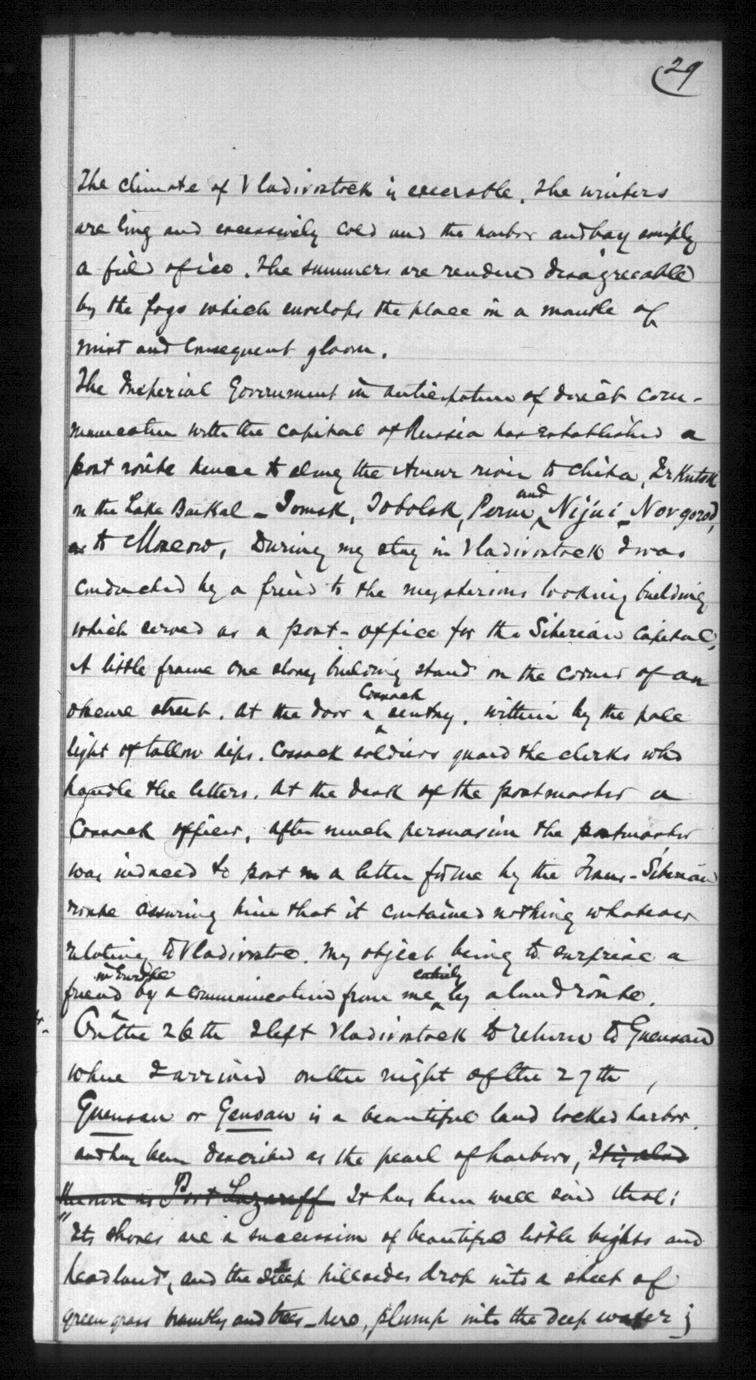 29
The climate of Vladivostock is execrable. The winters
are long and excessively cold and the harbor and bay simply
a field of ice. The summers are rendered disagreeable
by the fogs which envelops the place in a mantle of
mist and consequent gloom.
The Imperial Government in anticipation of direct com-
munication with the capital of Russia has established a
post route hence to along the Amur river to Chita, Irkutsk
on the Lake Baikal - Tomsk, Tobolsk, Perm, and Nijni-Novgorod,
to Moscow. During my stay in Vladivostock I was
conducted by a friend to the mysterious looking building
which served as a post-office for the Siberian capital.
A little frame one story building stand on the corner of an
obscure street. At the door a Cossack sentry, within by the pale
light of tallow dips. Cossack soldiers guard the clerks who
handle the letters. At the desk of the postmaster a
Cossack officer. After much persuasion the postmaster
was induced to post a letter for me by the Trans-Siberian
route assuring him that it contained nothing whatever
relating to Vladivostoc. My object being to surprise a
friend in Europe by a communication from me entirely by a land route.
On the 26th I left Vladivostock to return to Guensan
where I arrived on the night of the 27th,
Guensan or Gensan is a beautiful land locked harbor.
and has been described as the pearl of harbors, It is also
known as Port Lazareff It has been well said that:
"Its shores are a succession of beautiful little bights and
headlands, and the steep hillsides drop into a sheet of
green grass brambly and trees here, plump into the deep water;